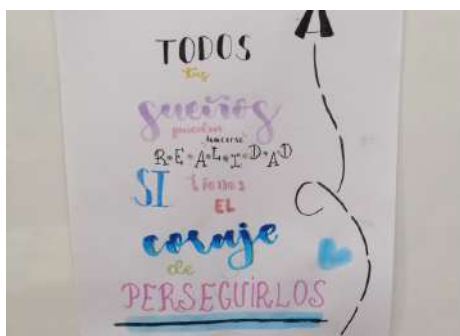 TODOS
tus
sueños
pueden
hacerse
R·E·A·L·I·D·A·D
SI tienes
EL
coraje
de
PERSEGUIRLOS